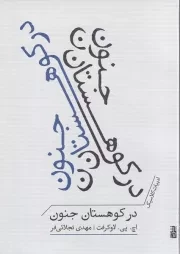 در کوهستان جنون
در کوهستان جنون
ادبیات کلاسیک
در کوهستان جنون
اچ. پی. لاوکرفت | مهدی نجلائی‌فر